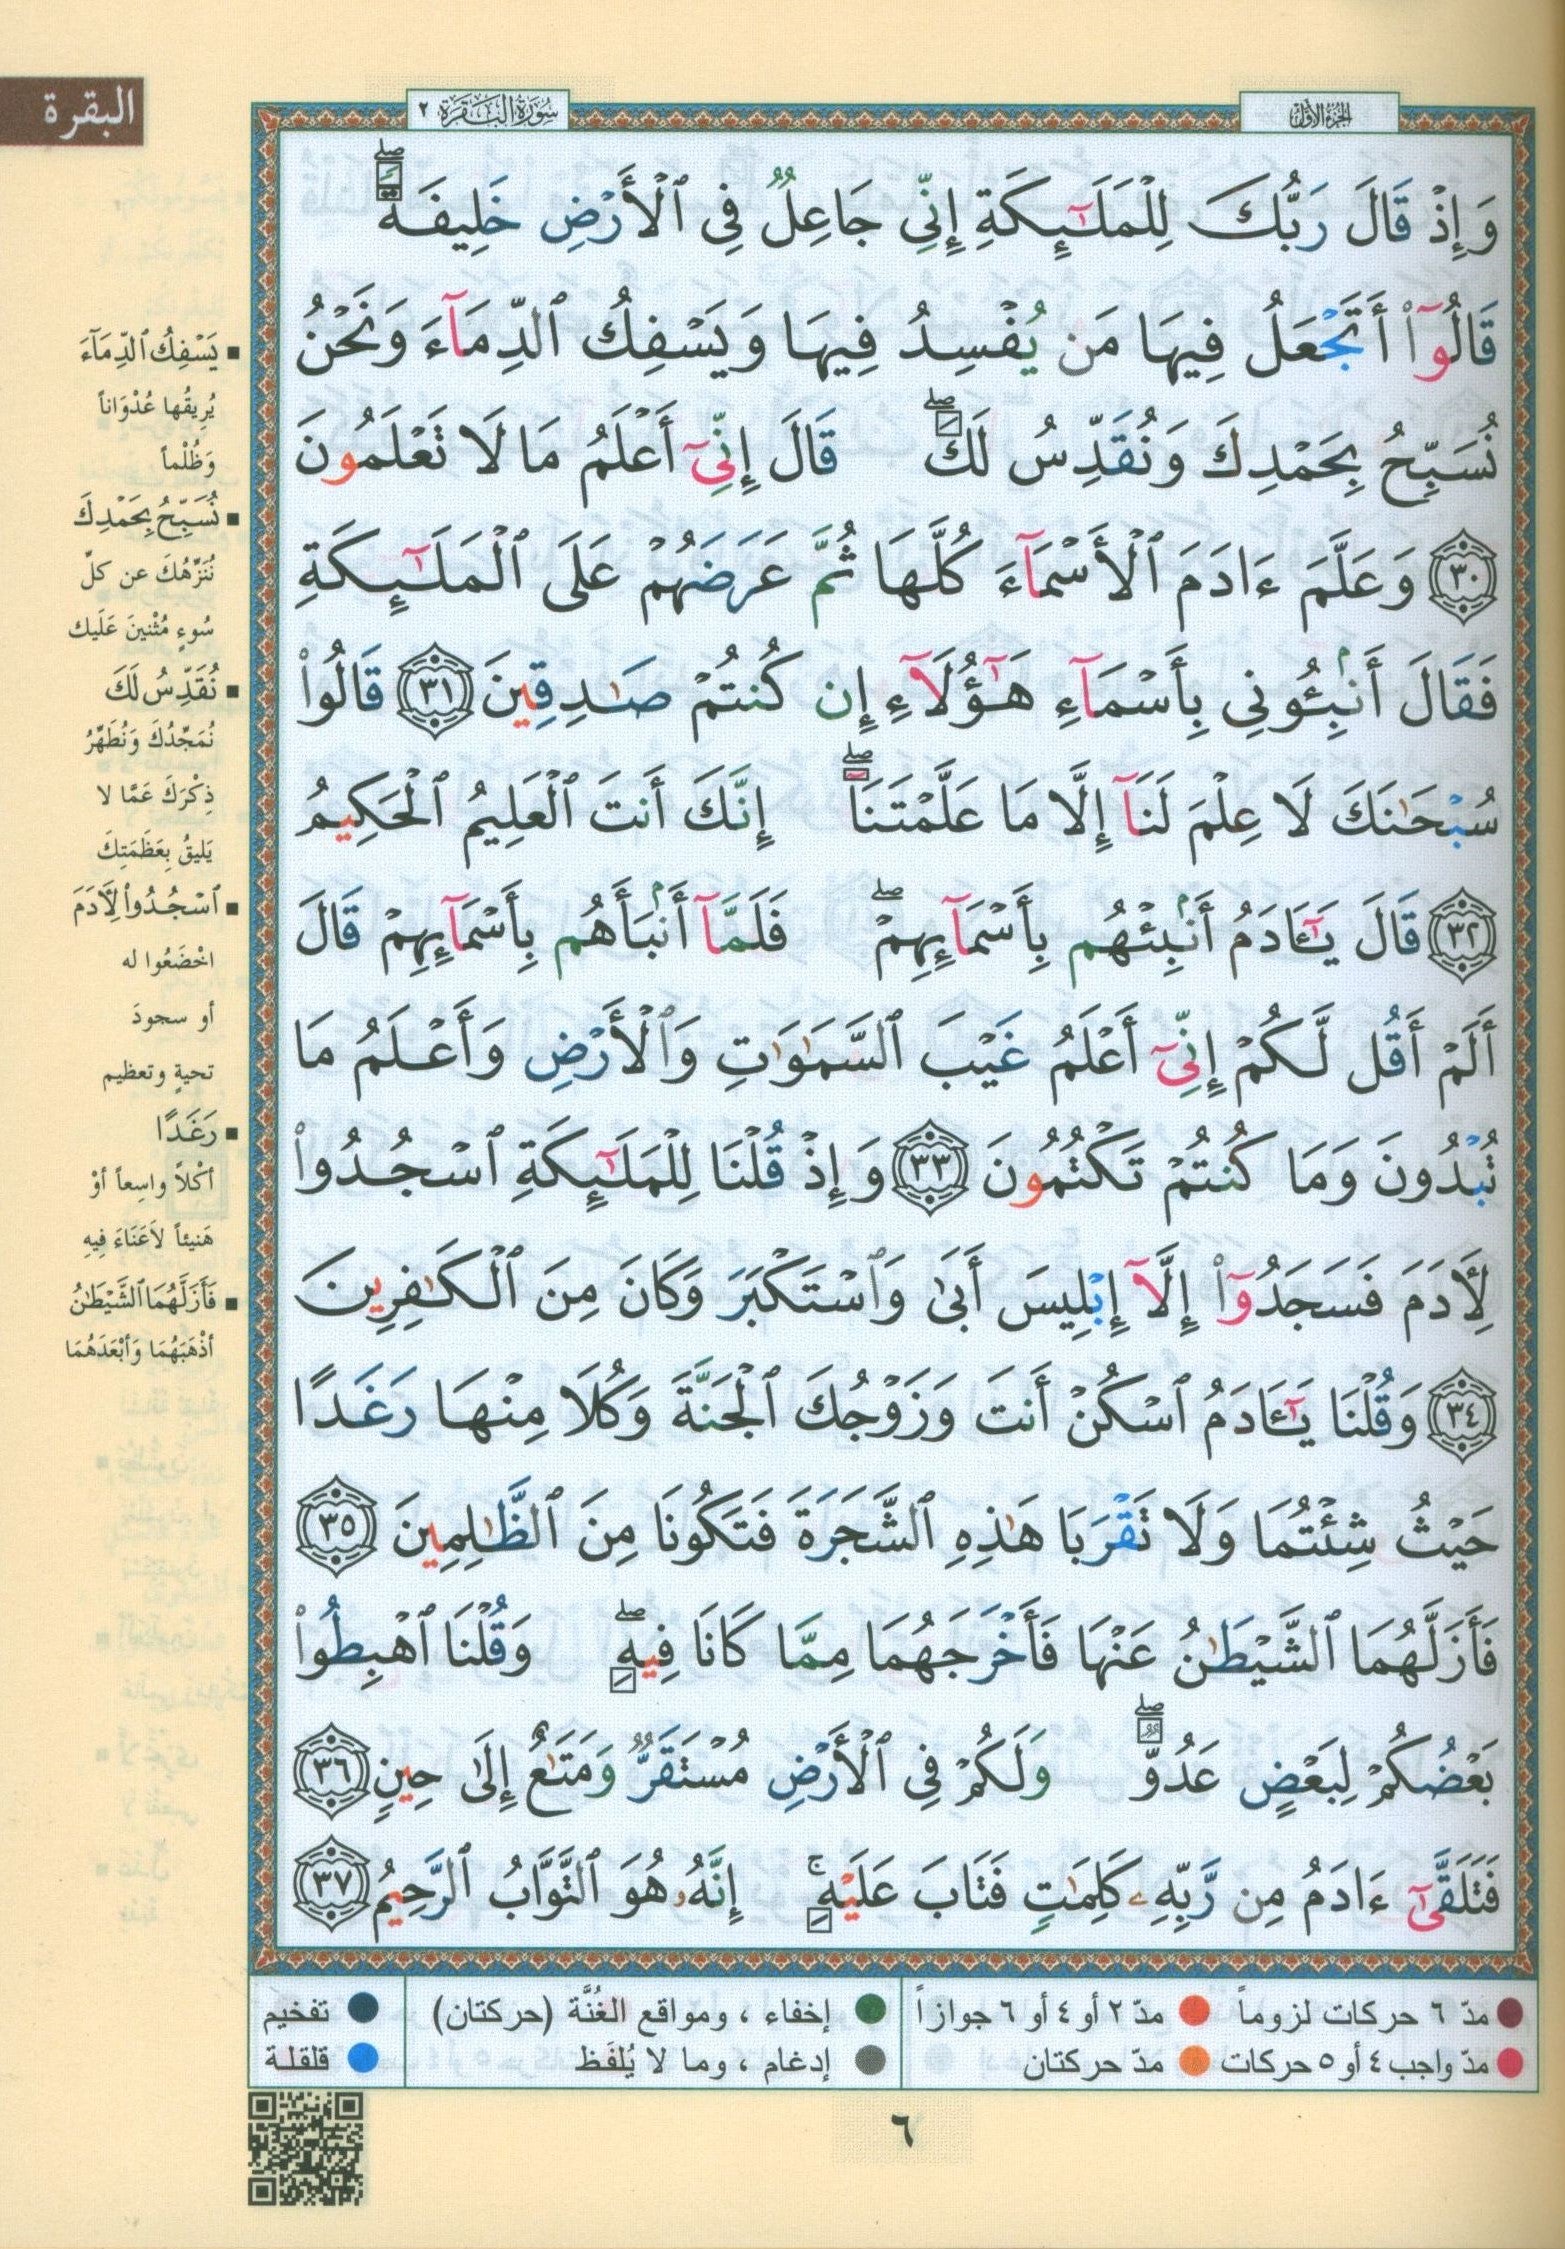 البقرة
سُورَةُ البَقَرَة ٢
الجزء الأول
وَإِذْ قَالَ رَبُّكَ لِلْمَلَـٰٓئِكَةِ إِنِّى جَاعِلٌ فِى ٱلْأَرْضِ خَلِيفَةً ۖ
قَالُوٓا۟ أَتَجْعَلُ فِيهَا مَن يُفْسِدُ فِيهَا وَيَسْفِكُ ٱلدِّمَآءَ وَنَحْنُ
نُسَبِّحُ بِحَمْدِكَ وَنُقَدِّسُ لَكَ ۖ قَالَ إِنِّىٓ أَعْلَمُ مَا لَا تَعْلَمُونَ
٣٠ وَعَلَّمَ ءَادَمَ ٱلْأَسْمَآءَ كُلَّهَا ثُمَّ عَرَضَهُمْ عَلَى ٱلْمَلَـٰٓئِكَةِ
فَقَالَ أَنۢبِـُٔونِى بِأَسْمَآءِ هَـٰٓؤُلَآءِ إِن كُنتُمْ صَـٰدِقِينَ ٣١ قَالُوا۟
سُبْحَـٰنَكَ لَا عِلْمَ لَنَآ إِلَّا مَا عَلَّمْتَنَآ ۖ إِنَّكَ أَنتَ ٱلْعَلِيمُ ٱلْحَكِيمُ
٣٢ قَالَ يَـٰٓـَٔادَمُ أَنۢبِئْهُم بِأَسْمَآئِهِمْ ۖ فَلَمَّآ أَنۢبَأَهُم بِأَسْمَآئِهِمْ قَالَ
أَلَمْ أَقُل لَّكُمْ إِنِّىٓ أَعْلَمُ غَيْبَ ٱلسَّمَـٰوَٰتِ وَٱلْأَرْضِ وَأَعْلَمُ مَا
تُبْدُونَ وَمَا كُنتُمْ تَكْتُمُونَ ٣٣ وَإِذْ قُلْنَا لِلْمَلَـٰٓئِكَةِ ٱسْجُدُوا۟
لِـَٔادَمَ فَسَجَدُوٓا۟ إِلَّآ إِبْلِيسَ أَبَىٰ وَٱسْتَكْبَرَ وَكَانَ مِنَ ٱلْكَـٰفِرِينَ
٣٤ وَقُلْنَا يَـٰٓـَٔادَمُ ٱسْكُنْ أَنتَ وَزَوْجُكَ ٱلْجَنَّةَ وَكُلَا مِنْهَا رَغَدًا
حَيْثُ شِئْتُمَا وَلَا تَقْرَبَا هَـٰذِهِ ٱلشَّجَرَةَ فَتَكُونَا مِنَ ٱلظَّـٰلِمِينَ ٣٥
فَأَزَلَّهُمَا ٱلشَّيْطَـٰنُ عَنْهَا فَأَخْرَجَهُمَا مِمَّا كَانَا فِيهِ ۖ وَقُلْنَا ٱهْبِطُوا۟
بَعْضُكُمْ لِبَعْضٍ عَدُوٌّ ۖ وَلَكُمْ فِى ٱلْأَرْضِ مُسْتَقَرٌّ وَمَتَـٰعٌ إِلَىٰ حِينٍ ٣٦
فَتَلَقَّىٰٓ ءَادَمُ مِن رَّبِّهِۦ كَلِمَـٰتٍ فَتَابَ عَلَيْهِ ۚ إِنَّهُۥ هُوَ ٱلتَّوَّابُ ٱلرَّحِيمُ ٣٧
يَسْفِكُ ٱلدِّمَآءَ
يُرِيقُها عُدْوَاناً
وَظُلْماً
نُسَبِّحُ بِحَمْدِكَ
نُنَزِّهُكَ عن كلِّ
سُوءٍ مُثْنينَ عَلَيك
نُقَدِّسُ لَكَ
نُمَجِّدُكَ وَنُطَهِّرُ
ذِكْرَكَ عَمَّا لا
يَليقُ بِعَظَمَتِكَ
ٱسْجُدُوا۟ لِـَٔادَمَ
اخْضَعُوا له
أو سجودَ
تحيةٍ وتعظيم
رَغَدًا
أكْلاً واسِعاً أوْ
هَنيئاً لاَعَنَاءَ فِيهِ
فَأَزَلَّهُمَا ٱلشَّيْطَـٰنُ
أذْهَبَهُمَا وَأبْعَدَهُمَا
مدّ ٦ حركات لزوماً مدّ ٢ أو ٤ أو ٦ جوازاً إخفاء ، ومواقع الغُنَّة (حركتان) تفخيم
مدّ واجب ٤ أو ٥ حركات مدّ حركتان إدغام ، وما لا يُلفَظ قلقلة
٦